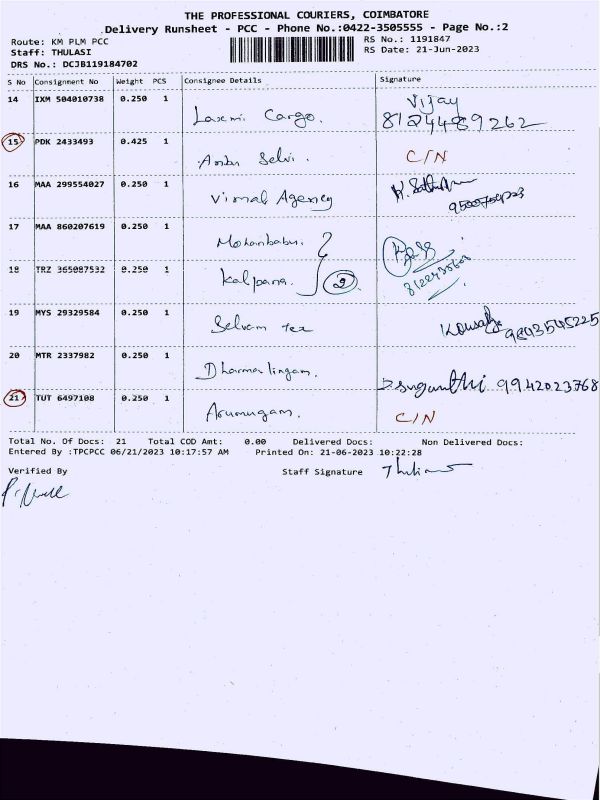 THE PROFESSIONAL COURIERS, COIMBATORE
Delivery Runsheet - PCC - Phone No.:0422-3505555 - Page No.:2
Route: KM PLM PCC RS No.: 1191847
Staff: THULASI RS Date: 21-Jun-2023
DRS No.: DCJB119184702
S No Consignment No Weight PCS Consignee Details Signature
14 IXM 504010738 0.250 1 Laxmi Cargo. Vijay
8124489262
15 PDK 2433493 0.425 1 Anbu Selvi. C/N
16 MAA 299554027 0.250 1 Vimal Agency
17 MAA 860207619 0.250 1 Mohanbabu.
18 TRZ 365087532 0.250 1 Kalpana. 2
19 MYS 29329584 0.250 1 Selvam tex 9843545225
20 MTR 2337982 0.250 1 Dharmalingam. suganthi 9942023768
21 TUT 6497108 0.250 1 Arumugam. C/N
Total No. Of Docs: 21 Total COD Amt: 0.00 Delivered Docs: Non Delivered Docs:
Entered By :TPCPCC 06/21/2023 10:17:57 AM Printed On: 21-06-2023 10:22:28
Verified By Staff Signature